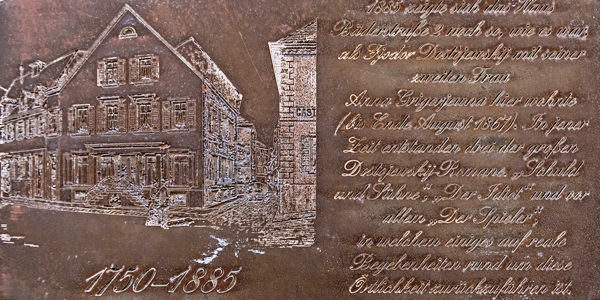 1885 zeigte sich das Haus
Bäderstraße 2 noch so, wie es war,
als Fjodor Dostojewskij mit seiner
zweiten Frau
Anna Grigorjewna hier wohnte
(bis Ende August 1867). In jener
Zeit entstanden drei der großen
Dostojewskij-Romane „Schuld
und Sühne“, „Der Idiot“ und vor
allem „Der Spieler“,
in welchem einiges auf reale
Begebenheiten rund um diese
Örtlichkeit zurückzuführen ist.
GAST
1750–1885